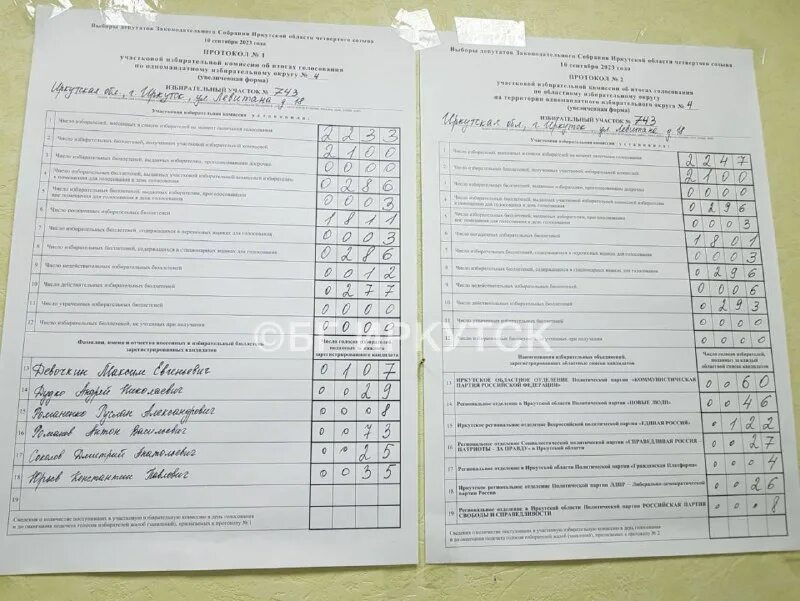 Выборы депутатов Законодательного Собрания Иркутской области четвертого созыва
10 сентября 2023 года
ПРОТОКОЛ № 1
участковой избирательной комиссии об итогах голосования
по одномандатному избирательному округу № 4
(увеличенная форма)
ИЗБИРАТЕЛЬНЫЙ УЧАСТОК № 743
Иркутская обл, г. Иркутск, ул Левитана д 18
Участковая избирательная комиссия установила:
1 Число избирателей, внесенных в список избирателей на момент окончания голосования 2 2 3 3
2 Число избирательных бюллетеней, полученных участковой избирательной комиссией 2 1 0 0
3 Число избирательных бюллетеней, выданных избирателям, проголосовавшим досрочно 0 0 0 0
4 Число избирательных бюллетеней, выданных участковой избирательной комиссией избирателям в помещении для голосования в день голосования 0 2 8 6
5 Число избирательных бюллетеней, выданных избирателям, проголосовавшим вне помещения для голосования в день голосования 0 0 0 3
6 Число погашенных избирательных бюллетеней 1 8 1 1
7 Число избирательных бюллетеней, содержащихся в переносных ящиках для голосования 0 0 0 3
8 Число избирательных бюллетеней, содержащихся в стационарных ящиках для голосования 0 2 8 6
9 Число недействительных избирательных бюллетеней 0 0 1 2
10 Число действительных избирательных бюллетеней 0 2 7 7
11 Число утраченных избирательных бюллетеней 0 0 0 0
12 Число избирательных бюллетеней, не учтенных при получении 0 0 0 0
Фамилии, имена и отчества внесенных в избирательный бюллетень зарегистрированных кандидатов
Число голосов избирателей, поданных за каждого зарегистрированного кандидата
13 Девочкин Максим Евгеньевич 0 1 0 7
14 Дудко Андрей Николаевич 0 0 2 9
15 Романенко Руслан Александрович 0 0 0 8
16 Романов Антон Васильевич 0 0 7 3
17 Соколов Дмитрий Анатольевич 0 0 2 5
18 Юрьев Константин Павлович 0 0 3 5
19
Сведения о количестве поступивших в участковую избирательную комиссию в день голосования
и до окончания подсчета голосов избирателей жалоб (заявлений), прилагаемых к протоколу № 1
Выборы депутатов Законодательного Собрания Иркутской области четвертого созыва
10 сентября 2023 года
ПРОТОКОЛ № 2
участковой избирательной комиссии об итогах голосования
по областному избирательному округу
на территории одномандатного избирательного округа № 4
(увеличенная форма)
ИЗБИРАТЕЛЬНЫЙ УЧАСТОК № 743
Иркутская обл, г Иркутск, ул Левитана, д 18
Участковая избирательная комиссия установила:
1 Число избирателей, внесенных в список избирателей на момент окончания голосования 2 2 4 7
2 Число избирательных бюллетеней, полученных участковой избирательной комиссией 2 1 0 0
3 Число избирательных бюллетеней, выданных избирателям, проголосовавшим досрочно 0 0 0 0
4 Число избирательных бюллетеней, выданных участковой избирательной комиссией избирателям в помещении для голосования в день голосования 0 2 9 6
5 Число избирательных бюллетеней, выданных избирателям, проголосовавшим вне помещения для голосования в день голосования 0 0 0 3
6 Число погашенных избирательных бюллетеней 1 8 0 1
7 Число избирательных бюллетеней, содержащихся в переносных ящиках для голосования 0 0 0 3
8 Число избирательных бюллетеней, содержащихся в стационарных ящиках для голосования 0 2 9 6
9 Число недействительных избирательных бюллетеней 0 0 0 6
10 Число действительных избирательных бюллетеней 0 2 9 3
11 Число утраченных избирательных бюллетеней 0 0 0 0
12 Число избирательных бюллетеней, не учтенных при получении 0 0 0 0
Наименования избирательных объединений, зарегистрировавших областные списки кандидатов
Число голосов избирателей, поданных за каждый областной список кандидатов
13 ИРКУТСКОЕ ОБЛАСТНОЕ ОТДЕЛЕНИЕ Политической партии «КОММУНИСТИЧЕСКАЯ ПАРТИЯ РОССИЙСКОЙ ФЕДЕРАЦИИ» 0 0 6 0
14 Региональное отделение в Иркутской области Политической партии «НОВЫЕ ЛЮДИ» 0 0 4 6
15 Иркутское региональное отделение Всероссийской политической партии «ЕДИНАЯ РОССИЯ» 0 1 2 2
16 Региональное отделение Социалистической политической партии «СПРАВЕДЛИВАЯ РОССИЯ - ПАТРИОТЫ - ЗА ПРАВДУ» в Иркутской области 0 0 2 7
17 Региональное отделение в Иркутской области Политической партии «Гражданская Платформа» 0 0 0 4
18 Иркутское региональное отделение Политической партии ЛДПР – Либерально-демократической партии России 0 0 2 6
19 Региональное отделение в Иркутской области Политической партии РОССИЙСКАЯ ПАРТИЯ СВОБОДЫ И СПРАВЕДЛИВОСТИ 0 0 0 8
Сведения о количестве поступивших в участковую избирательную комиссию в день голосования
и до окончания подсчета голосов избирателей жалоб (заявлений), прилагаемых к протоколу № 2